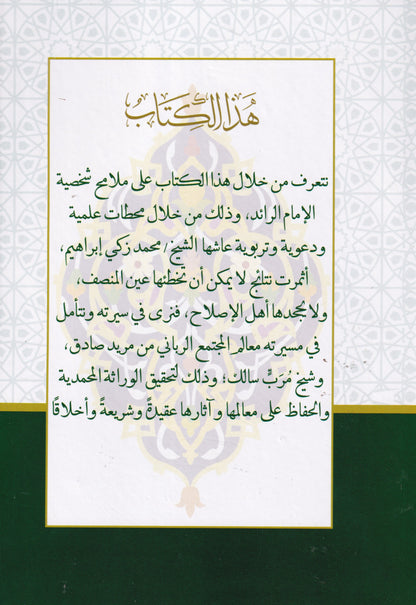 هَذَا الكِتَابُ
نتعرف من خلال هذا الكتاب على ملامح شخصية
الإمام الرائد، وذلك من خلال محطات علمية
ودعوية وتربوية عاشها الشيخ/ محمد زكي إبراهيم،
أثمرت نتائج لا يمكن أن تخطئها عين المنصف،
ولا يجحدها أهل الإصلاح، فنرى في سيرته ونتأمل
في مسيرته معالم المجتمع الرباني من مريد صادق،
وشيخ مُرَبٍّ سالك؛ وذلك لتحقيق الوراثة المحمدية
والحفاظ على معالمها وآثارها عقيدةً وشريعةً وأخلاقًا